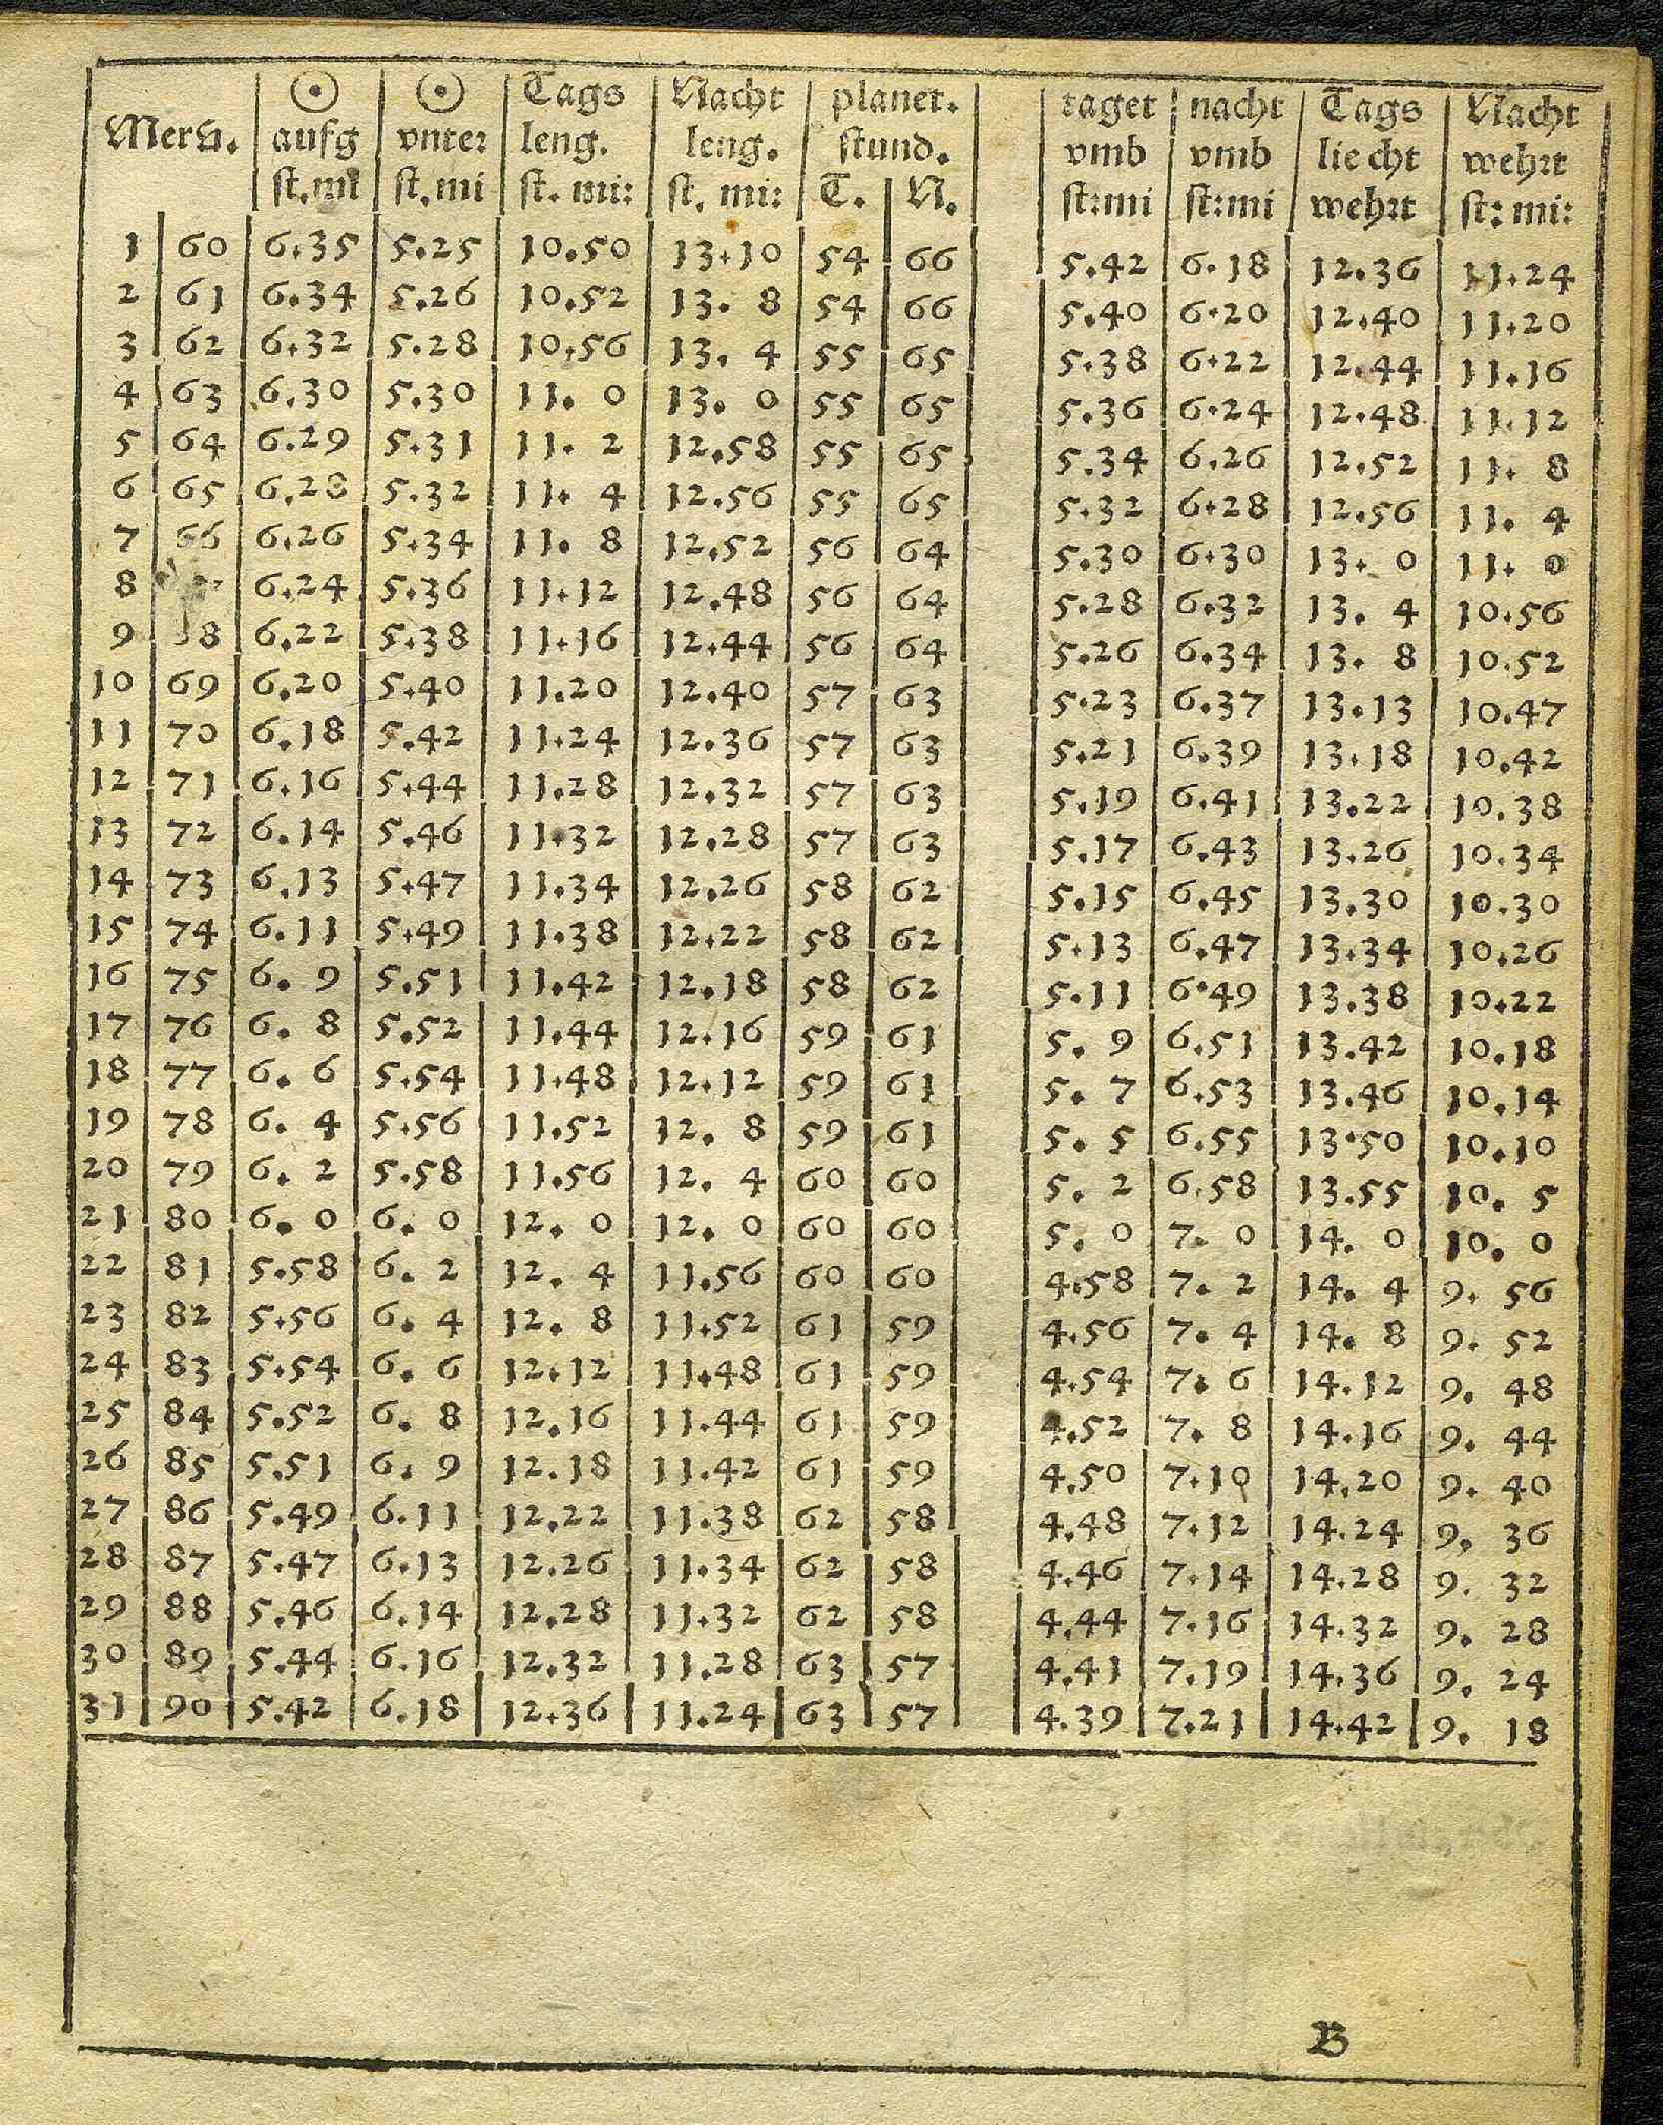 ☉ ☉ Tags Nacht planet. taget nacht Tags Nacht
Mertz. aufg vnter leng. leng. stund. vmb vmb liecht wehrt
st.mi st.mi st. mi: st. mi: T. N. st:mi st:mi wehrt st: mi:
1 60 6.35 5.25 10.50 13.10 54 66 5.42 6.18 12.36 11.24
2 61 6.34 5.26 10.52 13. 8 54 66 5.40 6.20 12.40 11.20
3 62 6.32 5.28 10.56 13. 4 55 65 5.38 6.22 12.44 11.16
4 63 6.30 5.30 11. 0 13. 0 55 65 5.36 6.24 12.48 11.12
5 64 6.29 5.31 11. 2 12.58 55 65 5.34 6.26 12.52 11. 8
6 65 6.28 5.32 11. 4 12.56 55 65 5.32 6.28 12.56 11. 4
7 66 6.26 5.34 11. 8 12.52 56 64 5.30 6.30 13. 0 11. 0
8 6.24 5.36 11.12 12.48 56 64 5.28 6.32 13. 4 10.56
9 6.22 5.38 11.16 12.44 56 64 5.26 6.34 13. 8 10.52
10 69 6.20 5.40 11.20 12.40 57 63 5.23 6.37 13.13 10.47
11 70 6.18 5.42 11.24 12.36 57 63 5.21 6.39 13.18 10.42
12 71 6.16 5.44 11.28 12.32 57 63 5.19 6.41 13.22 10.38
13 72 6.14 5.46 11.32 12.28 57 63 5.17 6.43 13.26 10.34
14 73 6.13 5.47 11.34 12.26 58 62 5.15 6.45 13.30 10.30
15 74 6.11 5.49 11.38 12.22 58 62 5.13 6.47 13.34 10.26
16 75 6. 9 5.51 11.42 12.18 58 62 5.11 6.49 13.38 10.22
17 76 6. 8 5.52 11.44 12.16 59 61 5. 9 6.51 13.42 10.18
18 77 6. 6 5.54 11.48 12.12 59 61 5. 7 6.53 13.46 10.14
19 78 6. 4 5.56 11.52 12. 8 59 61 5. 5 6.55 13.50 10.10
20 79 6. 2 5.58 11.56 12. 4 60 60 5. 2 6.58 13.55 10. 5
21 80 6. 0 6. 0 12. 0 12. 0 60 60 5. 0 7. 0 14. 0 10. 0
22 81 5.58 6. 2 12. 4 11.56 60 60 4.58 7. 2 14. 4 9. 56
23 82 5.56 6. 4 12. 8 11.52 61 59 4.56 7. 4 14. 8 9. 52
24 83 5.54 6. 6 12.12 11.48 61 59 4.54 7. 6 14.12 9. 48
25 84 5.52 6. 8 12.16 11.44 61 59 4.52 7. 8 14.16 9. 44
26 85 5.51 6. 9 12.18 11.42 61 59 4.50 7.10 14.20 9. 40
27 86 5.49 6.11 12.22 11.38 62 58 4.48 7.12 14.24 9. 36
28 87 5.47 6.13 12.26 11.34 62 58 4.46 7.14 14.28 9. 32
29 88 5.46 6.14 12.28 11.32 62 58 4.44 7.16 14.32 9. 28
30 89 5.44 6.16 12.32 11.28 63 57 4.41 7.19 14.36 9. 24
31 90 5.42 6.18 12.36 11.24 63 57 4.39 7.21 14.42 9. 18
B